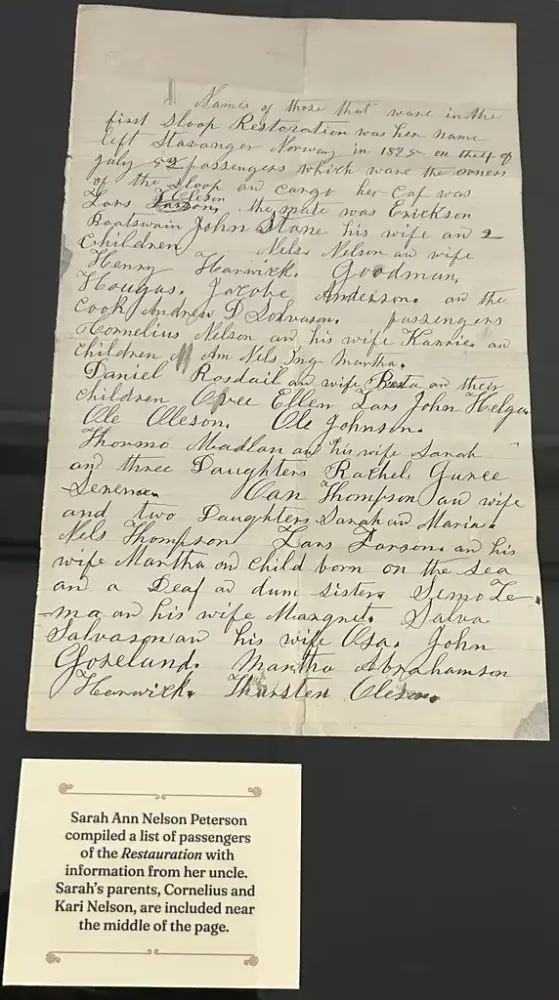 Names of those that ware in the
first Sloop Restoration was her name
left Stavanger Norway in 1825 on the 4 of
July 52 passengers which ware the owness
of the Sloop an cargo her Cap was
Oleson
Lars Larson, the mate was Erickson
Boatswain John Stane his wife an 2
Children Nels Nelson an wife
Henry Harwick. Goodman,
Hougas. Jacobe Anderson. an the
Cook Andrew D Solvason. passengers
Cornelius Nelson an his wife Karrie an
children Am Nels Ing Martha.
Daniel Rosdail an wife Beta an their
children Ovee Ellen Lars John Helga
Ole Oleson. Ole Johnson.
Thormo Madlan an his wife Sarah
an three Daughters Rachel. Guree
Serena. Oan Thompson an wife
and two Daughters Sarah an Maria.
Nels Thompson Lars Larson. an his
wife Martha an Child born on the sea
an a Deaf an dum sister. Simo Le
ma an his wife Miangret. Salva
Salvason an his wife Asa. John
Goselund. Martha Abrahamson
Herwick. Thursten Oleson.
Sarah Ann Nelson Peterson
compiled a list of passengers
of the Restauration with
information from her uncle.
Sarah's parents, Cornelius and
Kari Nelson, are included near
the middle of the page.